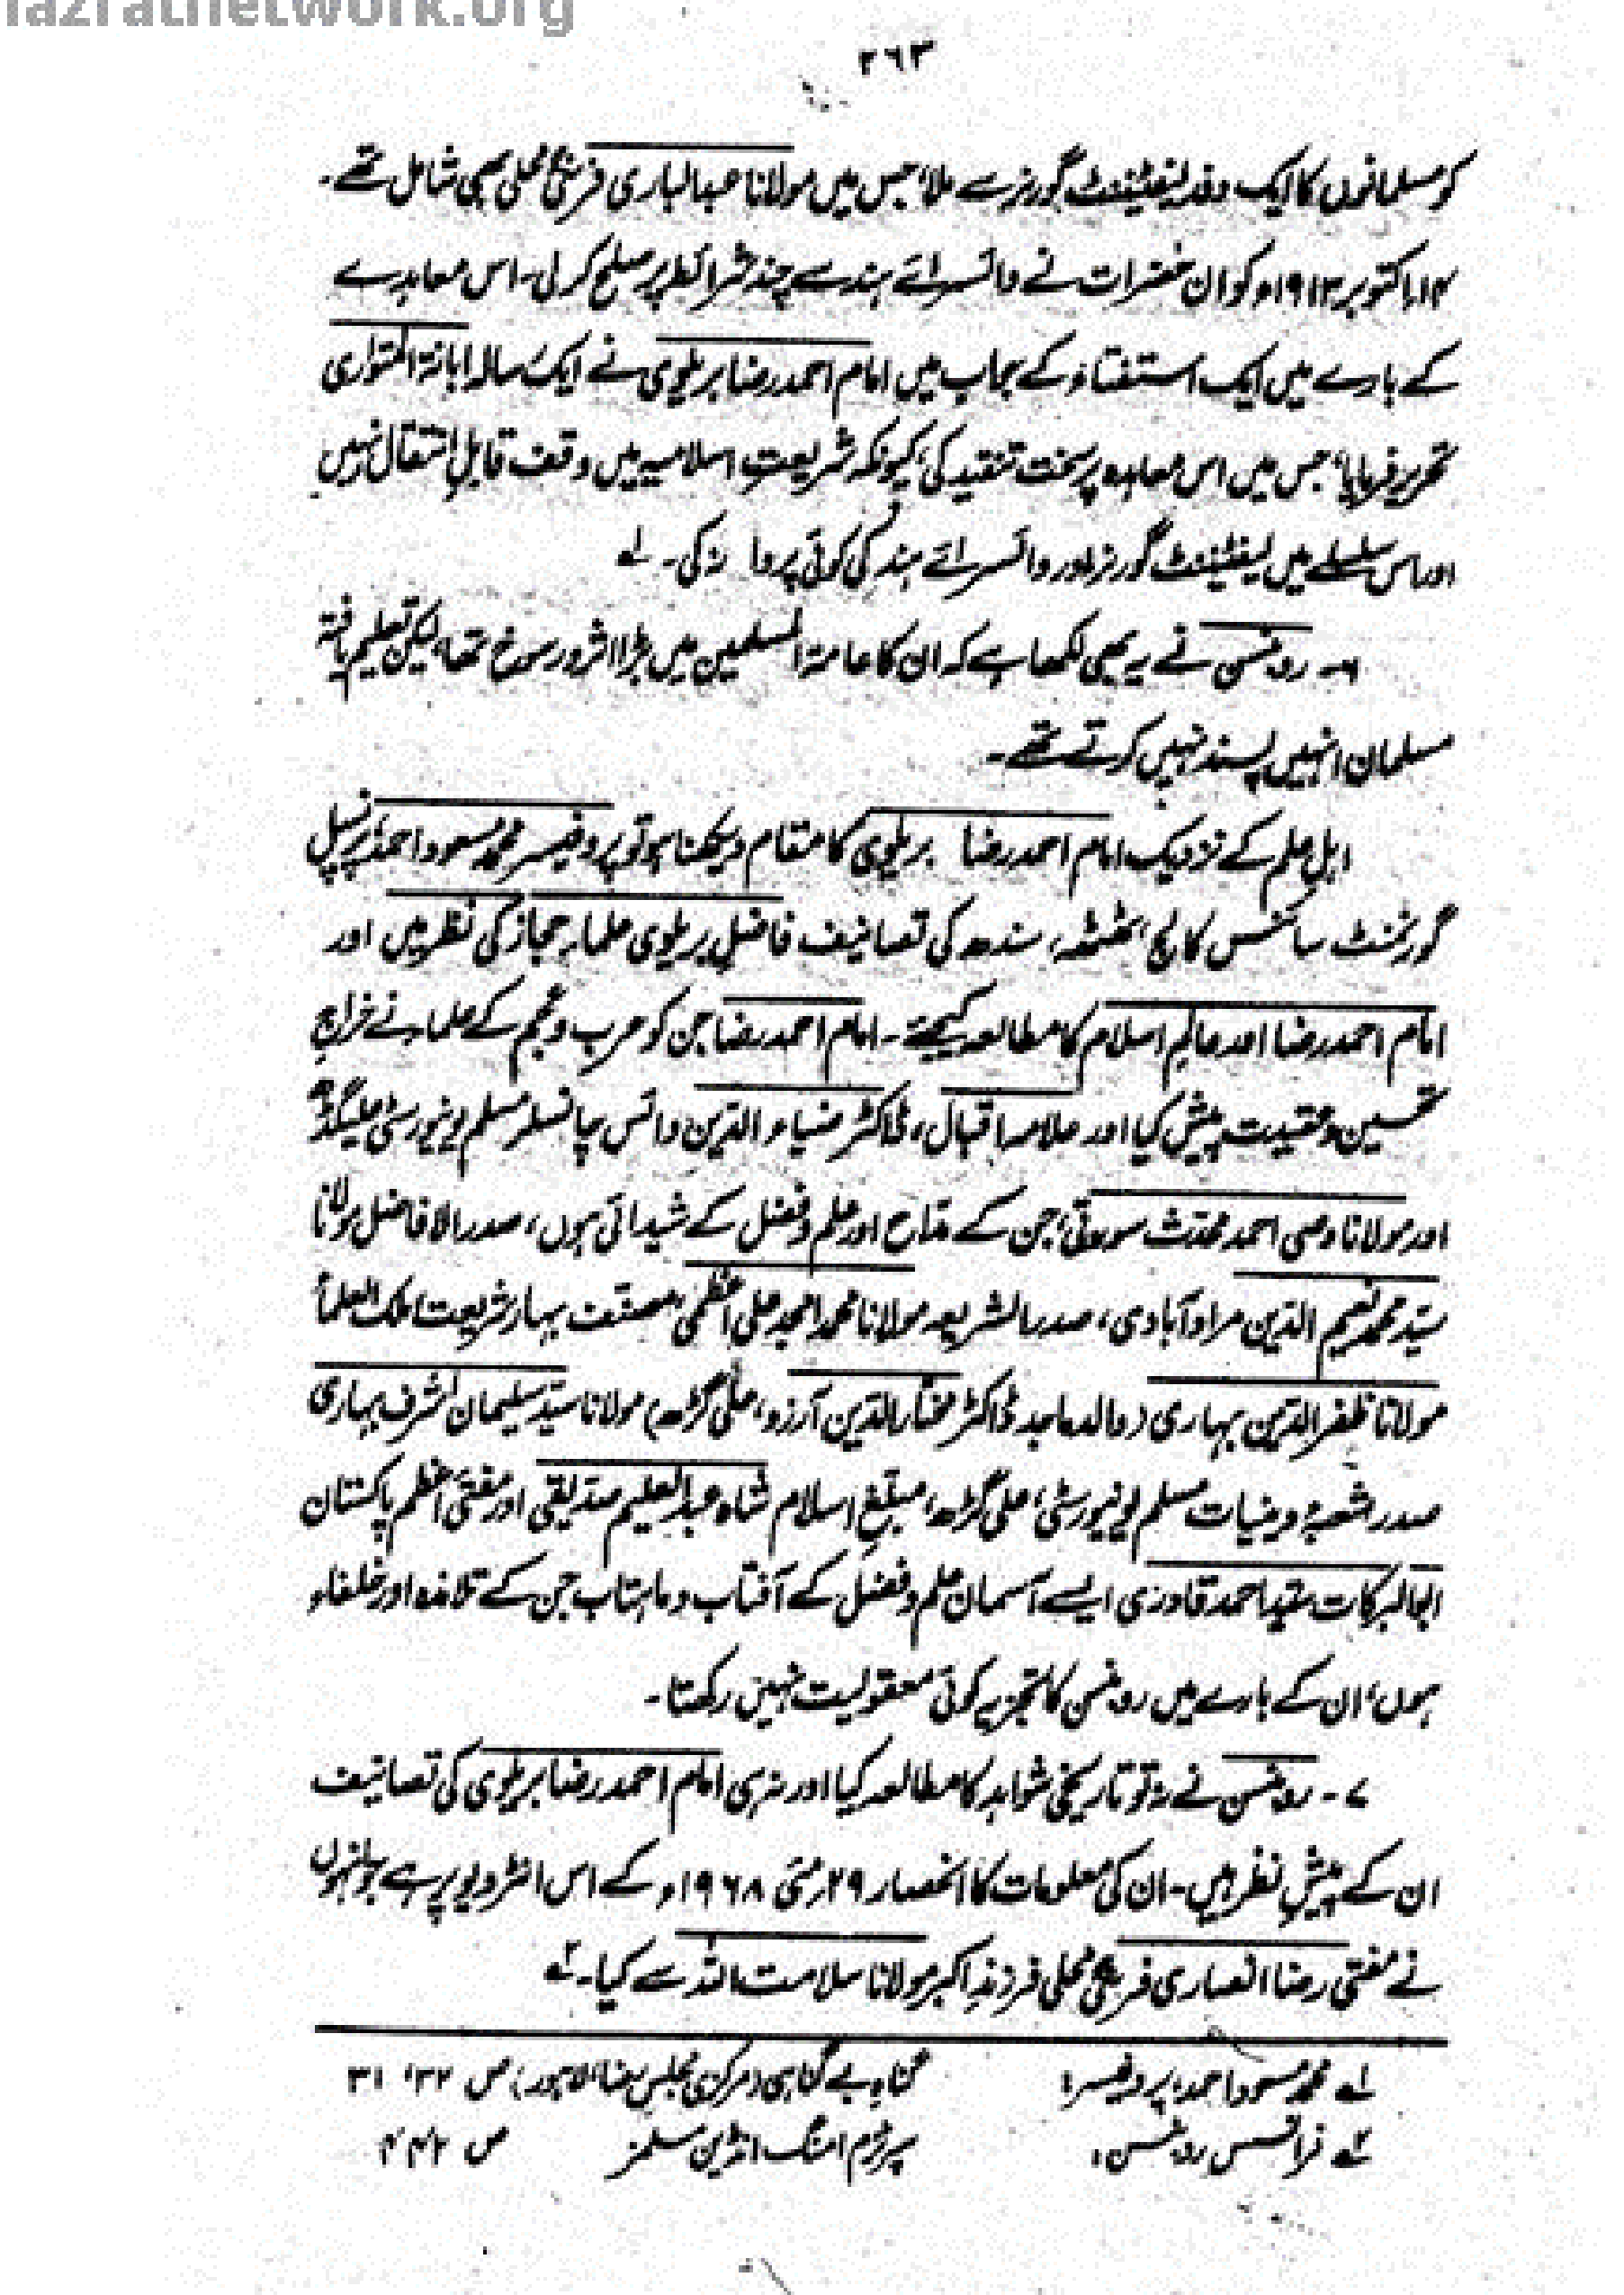 lazratnetwork.org
۲۶۳
کو مسلمانوں کا ایک وفد لیفٹیننٹ گورنر سے ملا، جس میں مولانا عبدالباری فرنگی محلی بھی شامل تھے۔
۱۴؍اکتوبر ۱۹۱۳ء کو ان حضرات نے وائسرائے ہند سے چند شرائط پر صلح کرلی۔ اس معاہدے
کے بارے میں ایک استفتاء کے جواب میں امام احمد رضا بریلوی نے ایک رسالہ ابانۃ المتواری
تحریر فرمایا، جس میں اس معاہدہ پر سخت تنقید کی، کیونکہ شریعتِ اسلامیہ میں وقف قابلِ انتقال نہیں
اور اس سلسلے میں لیفٹیننٹ گورنر اور وائسرائے ہند کی کوئی پروا نہ کی۔ ۱؎
۶۔ روبنسن نے یہ بھی لکھا ہے کہ ان کا عامۃ المسلمین میں بڑا اثر و رسوخ تھا، لیکن تعلیم یافتہ
مسلمان انہیں پسند نہیں کرتے تھے۔
اہلِ علم کے نزدیک امام احمد رضا بریلوی کا مقام دیکھنا ہو تو پروفیسر محمد مسعود احمد، پرنسپل
گورنمنٹ سائنس کالج، ٹھٹھہ، سندھ کی تصانیف فاضلِ بریلوی علماء حجاز کی نظر میں اور
امام احمد رضا اور عالمِ اسلام کا مطالعہ کیجئے۔ امام احمد رضا جن کو عرب و عجم کے علماء نے خراجِ
تحسین و عقیدت پیش کیا اور علامہ اقبال، ڈاکٹر ضیاء الدین وائس چانسلر مسلم یونیورسٹی علیگڈھ
اور مولانا وصی احمد محدّث سورتی، جن کے مدّاح اور علم و فضل کے شیدائی ہوں، صدر الافاضل مولانا
سیّد محمد نعیم الدین مراد آبادی، صدر الشریعہ مولانا محمد امجد علی اعظمی، مصنّف بہارِ شریعت، ملک العلماء
مولانا ظفر الدّین بہاری (والد ماجد ڈاکٹر مختار الدّین آرزو، علی گڑھ) مولانا سیّد سلیمان اشرف بہاری
صدر شعبۂ دینیات مسلم یونیورسٹی، علی گڑھ، مبلّغِ اسلام شاہ عبدالعلیم صدّیقی اور مفتیِ اعظم پاکستان
ابوالبرکات سیّد احمد قادری ایسے آسمان علم و فضل کے آفتاب و ماہتاب جن کے تلامذہ اور خلفاء
ہوں، ان کے بارے میں روبنسن کا تجزیہ کوئی معقولیت نہیں رکھتا۔
۷۔ روبنسن نے نہ تو تاریخی شواہد کا مطالعہ کیا اور نہ ہی امام احمد رضا بریلوی کی تصانیف
ان کے پیشِ نظر ہیں۔ ان کی معلومات کا انحصار ۲۹؍مئی ۱۹۶۸ء کے اس انٹرویو پر ہے جو انہوں
نے مفتی رضا انصاری فرنگی محلی فرزندِ اکبر مولانا سلامت اللہ سے کیا۔ ۲؎
۱؎ محمد مسعود احمد، پروفیسر: گناہِ بے گناہی (مرکزی مجلس رضا، لاہور) ص ۳۲، ۳۱
۲؎ فرانسس روبنسن: سپرٹزم امنگ انڈین مسلمز ص ۴۴۲